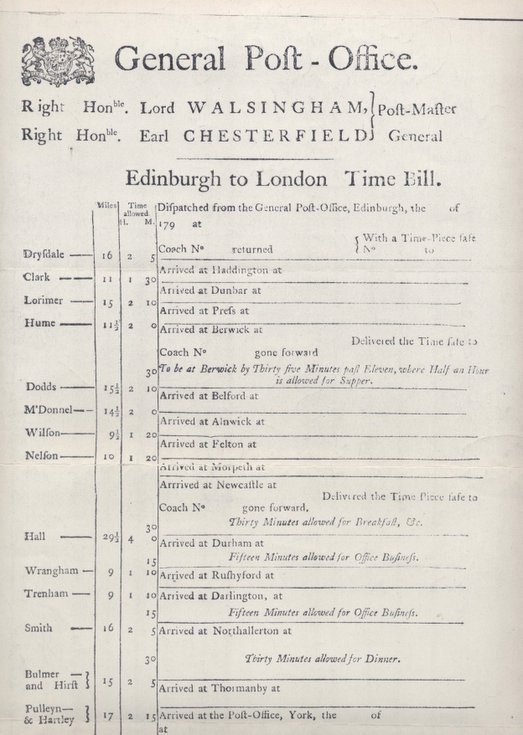 General Poſt-Office.
Right Honble. Lord WALSINGHAM, } Poſt-Maſter
Right Honble. Earl CHESTERFIELD } General
Edinburgh to London Time Bill.
Miles Time allowed H. M.
Diſpatched from the General Poſt-Office, Edinburgh, the of
179 at
Coach No returned { With a Time-Piece ſafe
{ No to
Dryſdale — 16 2 5
Arrived at Haddington at
Clark — 11 1 30
Arrived at Dunbar at
Lorimer — 15 2 10
Arrived at Preſs at
Hume — 11½ 2 0
Arrived at Berwick at
Delivered the Time ſafe to
Coach No gone forward
30 To be at Berwick by Thirty five Minutes paſt Eleven, where Half an Hour
is allowed for Supper.
Dodds — 15½ 2 10
Arrived at Belford at
M'Donnel — 14½ 2 0
Arrived at Alnwick at
Wilſon — 9½ 1 20
Arrived at Felton at
Nelſon — 10 1 20
Arrived at Morpeth at
Arrrived at Newcaſtle at
Delivered the Time Piece ſafe to
Coach No gone forward,
30 Thirty Minutes allowed for Breakfaſt, &c.
Hall — 29½ 4 0
Arrived at Durham at
15 Fifteen Minutes allowed for Office Buſineſs.
Wrangham — 9 1 10 Arrived at Ruſhyford at
Trenham — 9 1 10 Arrived at Darlington, at
15 Fifteen Minutes allowed for Office Buſineſs.
Smith — 16 2 5 Arrived at Northallerton at
30 Thirty Minutes allowed for Dinner.
Bulmer — }
and Hirſt } 15 2 5
Arrived at Thormanby at
Pulleyn — }
& Hartley } 17 2 15 Arrived at the Poſt-Office, York, the of
at